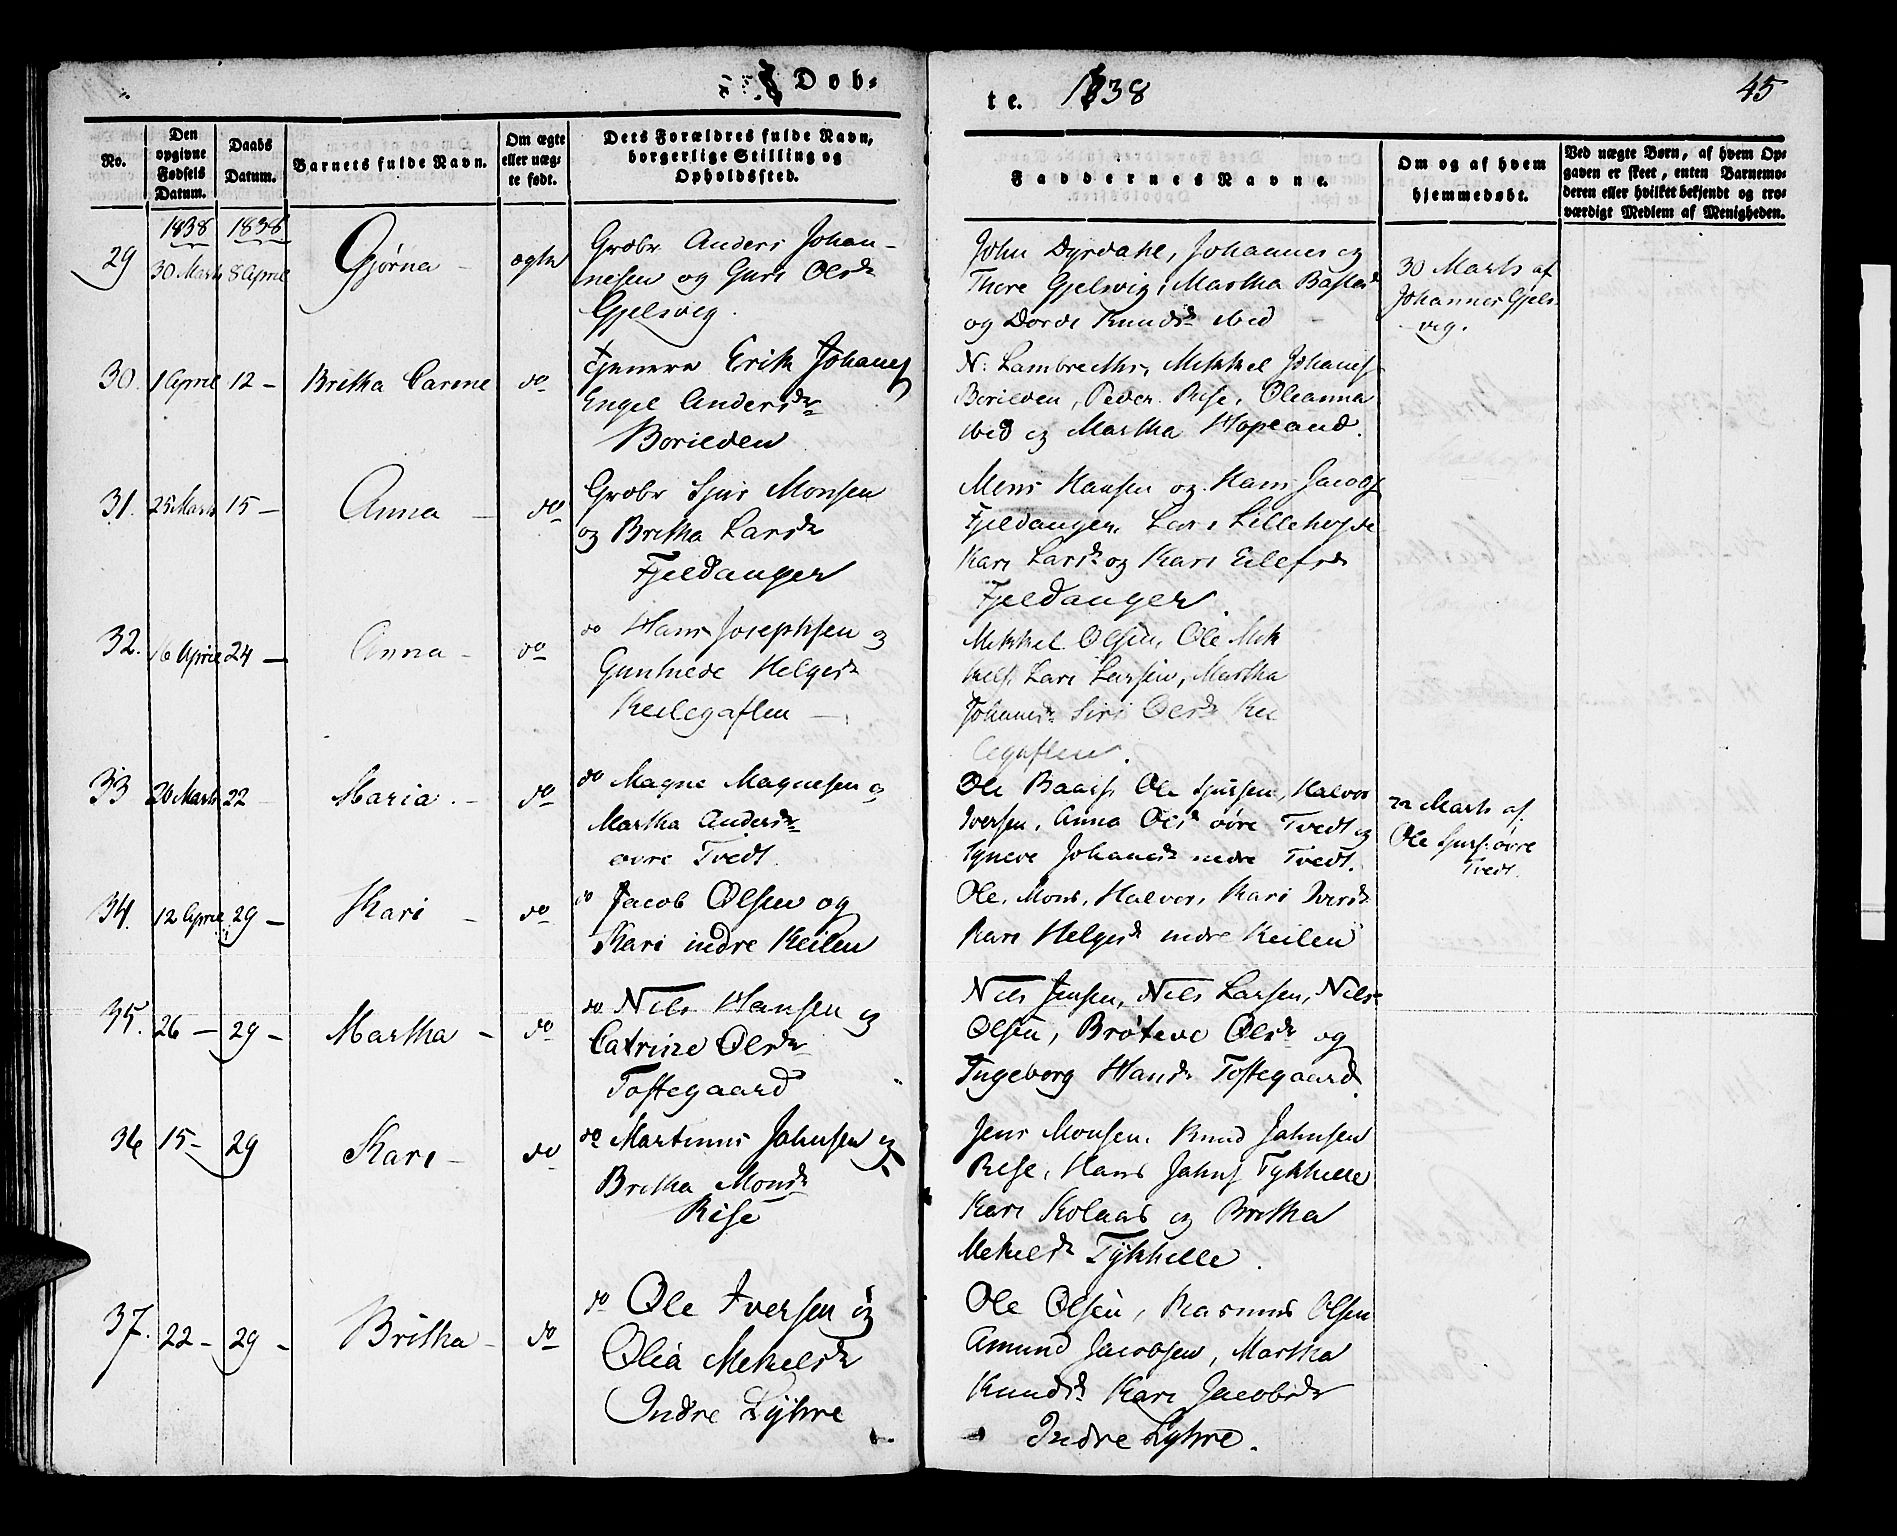 Døb-
te. 1838
45
No.
Den opgivne Fødsels Datum.
Daabs Datum.
Barnets fulde Navn.
Om ægte eller uægte født.
Dets Forældres fulde Navn, borgerlige Stilling og Opholdssted.
Faddernes Navne.
Om og af hvem hjemmedøbt.
Ved uægte Børn, af hvem Opgaven er skeet, enten Barnemoderen eller hvilket bekjendt og troværdigt Medlem af Menigheden.
1838 1838
29 30 Marts 8 April Gjørna - ægte
Grbr Anders Johan-
nesen og Guri Olsdr
Gjelsvig.
John Dyrdahl, Johannes og
Thore Gjelsvig, Martha
og Dorde Knudsdr ibid -
30 Marts af
Johannes Gjels
vig.
30. 1 April 12 - Britha Carine do
Tjenere Erik Johanes
Engel Andersdr
Borilden
N: Lambrechts, Mikkel Johanes
Borilden, Peder Rise, Oleanna
ibid og Martha Hopland.
31. 25 Marts 15 - Anna - do
Grbr Sjur Monsen
og Britha Larsdr
Fjeldanger
Mons Hansen og Hans Jacobs
Fjeldanger, Lars Lillehøyde
Kari Larsdr og Kari Eilefsdr
Fjeldanger.
32. 16 April 24 - Anna - do
do Hans Josephsen og
Gunhilde Helgesdr
Keilegaflen -
Mikkel Olsen, Ole Mik
kels. Lars Larsen, Martha
Johanesdr Siri Olsdr Kei
legaflen.
33 20 Marts 22 Maria. - do
do Magne Magnesen og
Martha Andersdr
øvre Tvedt
Ole Ole Sjursen, Halvor
Iversen, Anna Olsdr øvre Tvedt og
Johanesdr nedre Tvedt.
22 Marts af
Ole Sjurs. øvre
Tvedt.
34. 12 April 29 - Kari - do
do Jacob Olsen og
Kari indre Keilen
Ole, Mons, Halvor, Kari Iversdr
Kari Helgesdr indre Keilen
35. 26 - 29 - Martha - do
do Nils Hansen og
Catrine Olsdr
Toftegaard
Nils Jensen, Nils Larsen, Nils
Olsen, Brøteve Olsdr og
Ingeborg Hansdr Toftegaard.
36 15 - 29 Kari - do
do Martinus Johnsen og
Britha Monsdr
Rise
Jens Monsen, Knud Johnsen
Rise, Hans Johns Tykhelle
Kari Kolaas og Britha
Mekelsdr Tykhelle.
37. 22 - 29 - Britha - do
do Ole Iversen og
Olia Mekelsdr
Indre Lyhre
Ole Olsen, Rasmus Olsen
Amund Jacobsen, Martha
Knudsdr Kari Jacobsdr
Indre Lyhre.